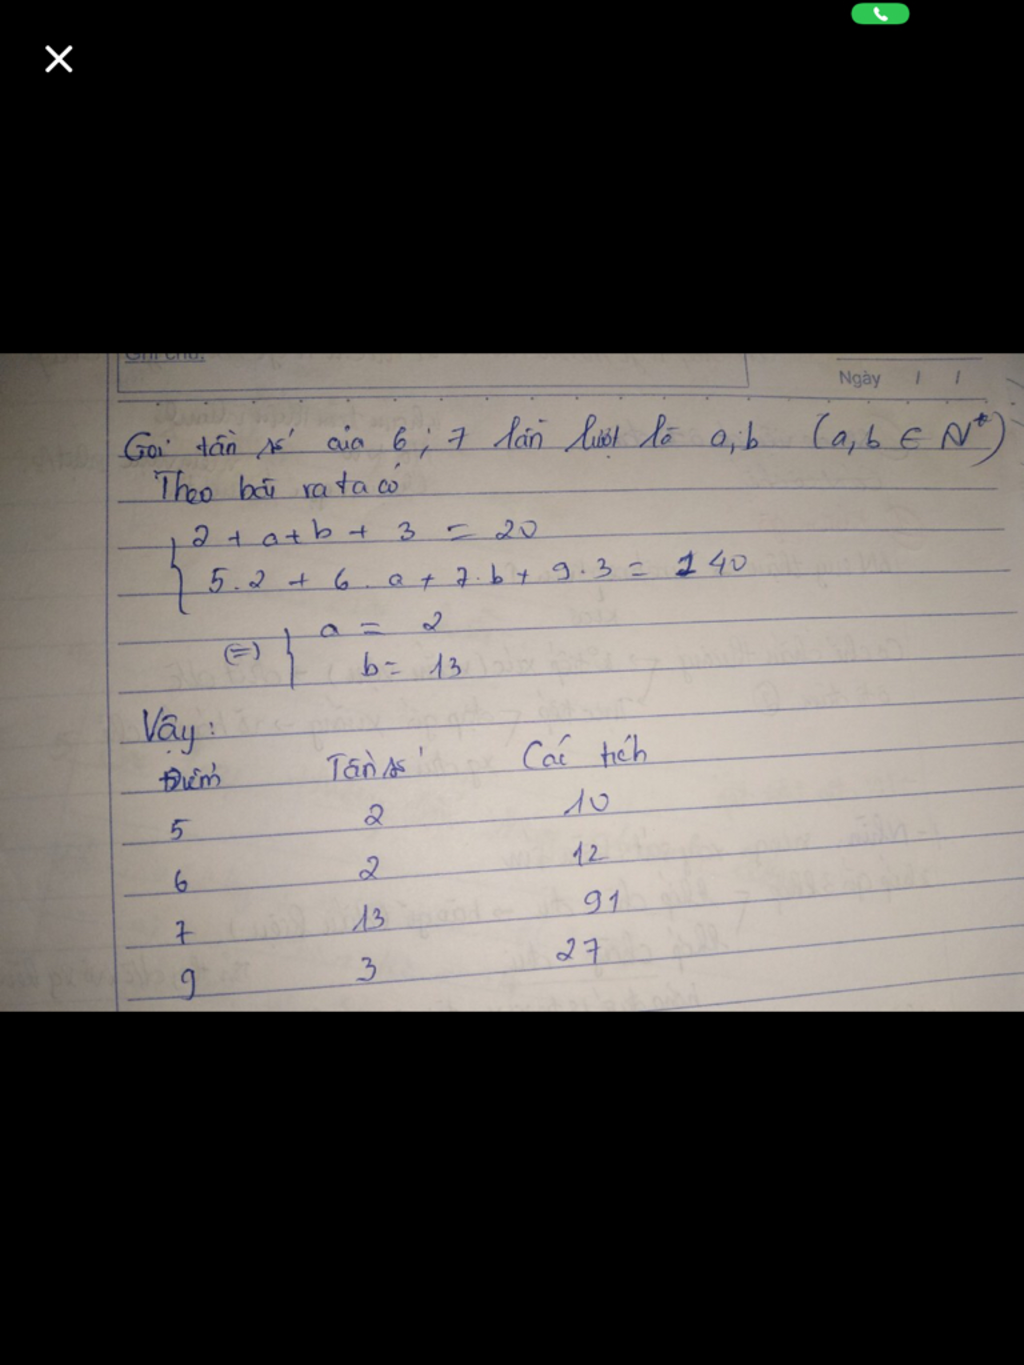 Ghi chú:
Ngày / /
Gọi tần số của 6 ; 7 lần lượt là a, b (a, b ∈ N*)
Theo bài ra ta có
2 + a + b + 3 = 20
5.2 + 6.a + 7.b + 9.3 = 140
(=) a = 2
b = 13
Vậy:
Điểm Tần số Các tích
5 2 10
6 2 12
7 13 91
9 3 27